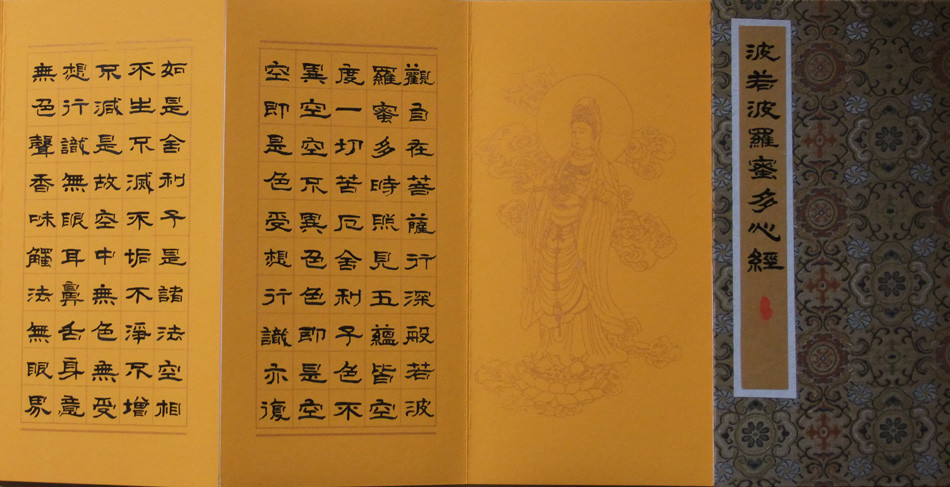 波若波羅蜜多心經
觀自在菩薩行深般若波
羅蜜多時照見五蘊皆空
度一切苦厄舍利子色不
異空空不異色色即是空
空即是色受想行識亦復
如是舍利子是諸法空相
不生不滅不垢不淨不增
不減是故空中無色無受
想行識無眼耳鼻舌身意
無色聲香味觸法無眼界